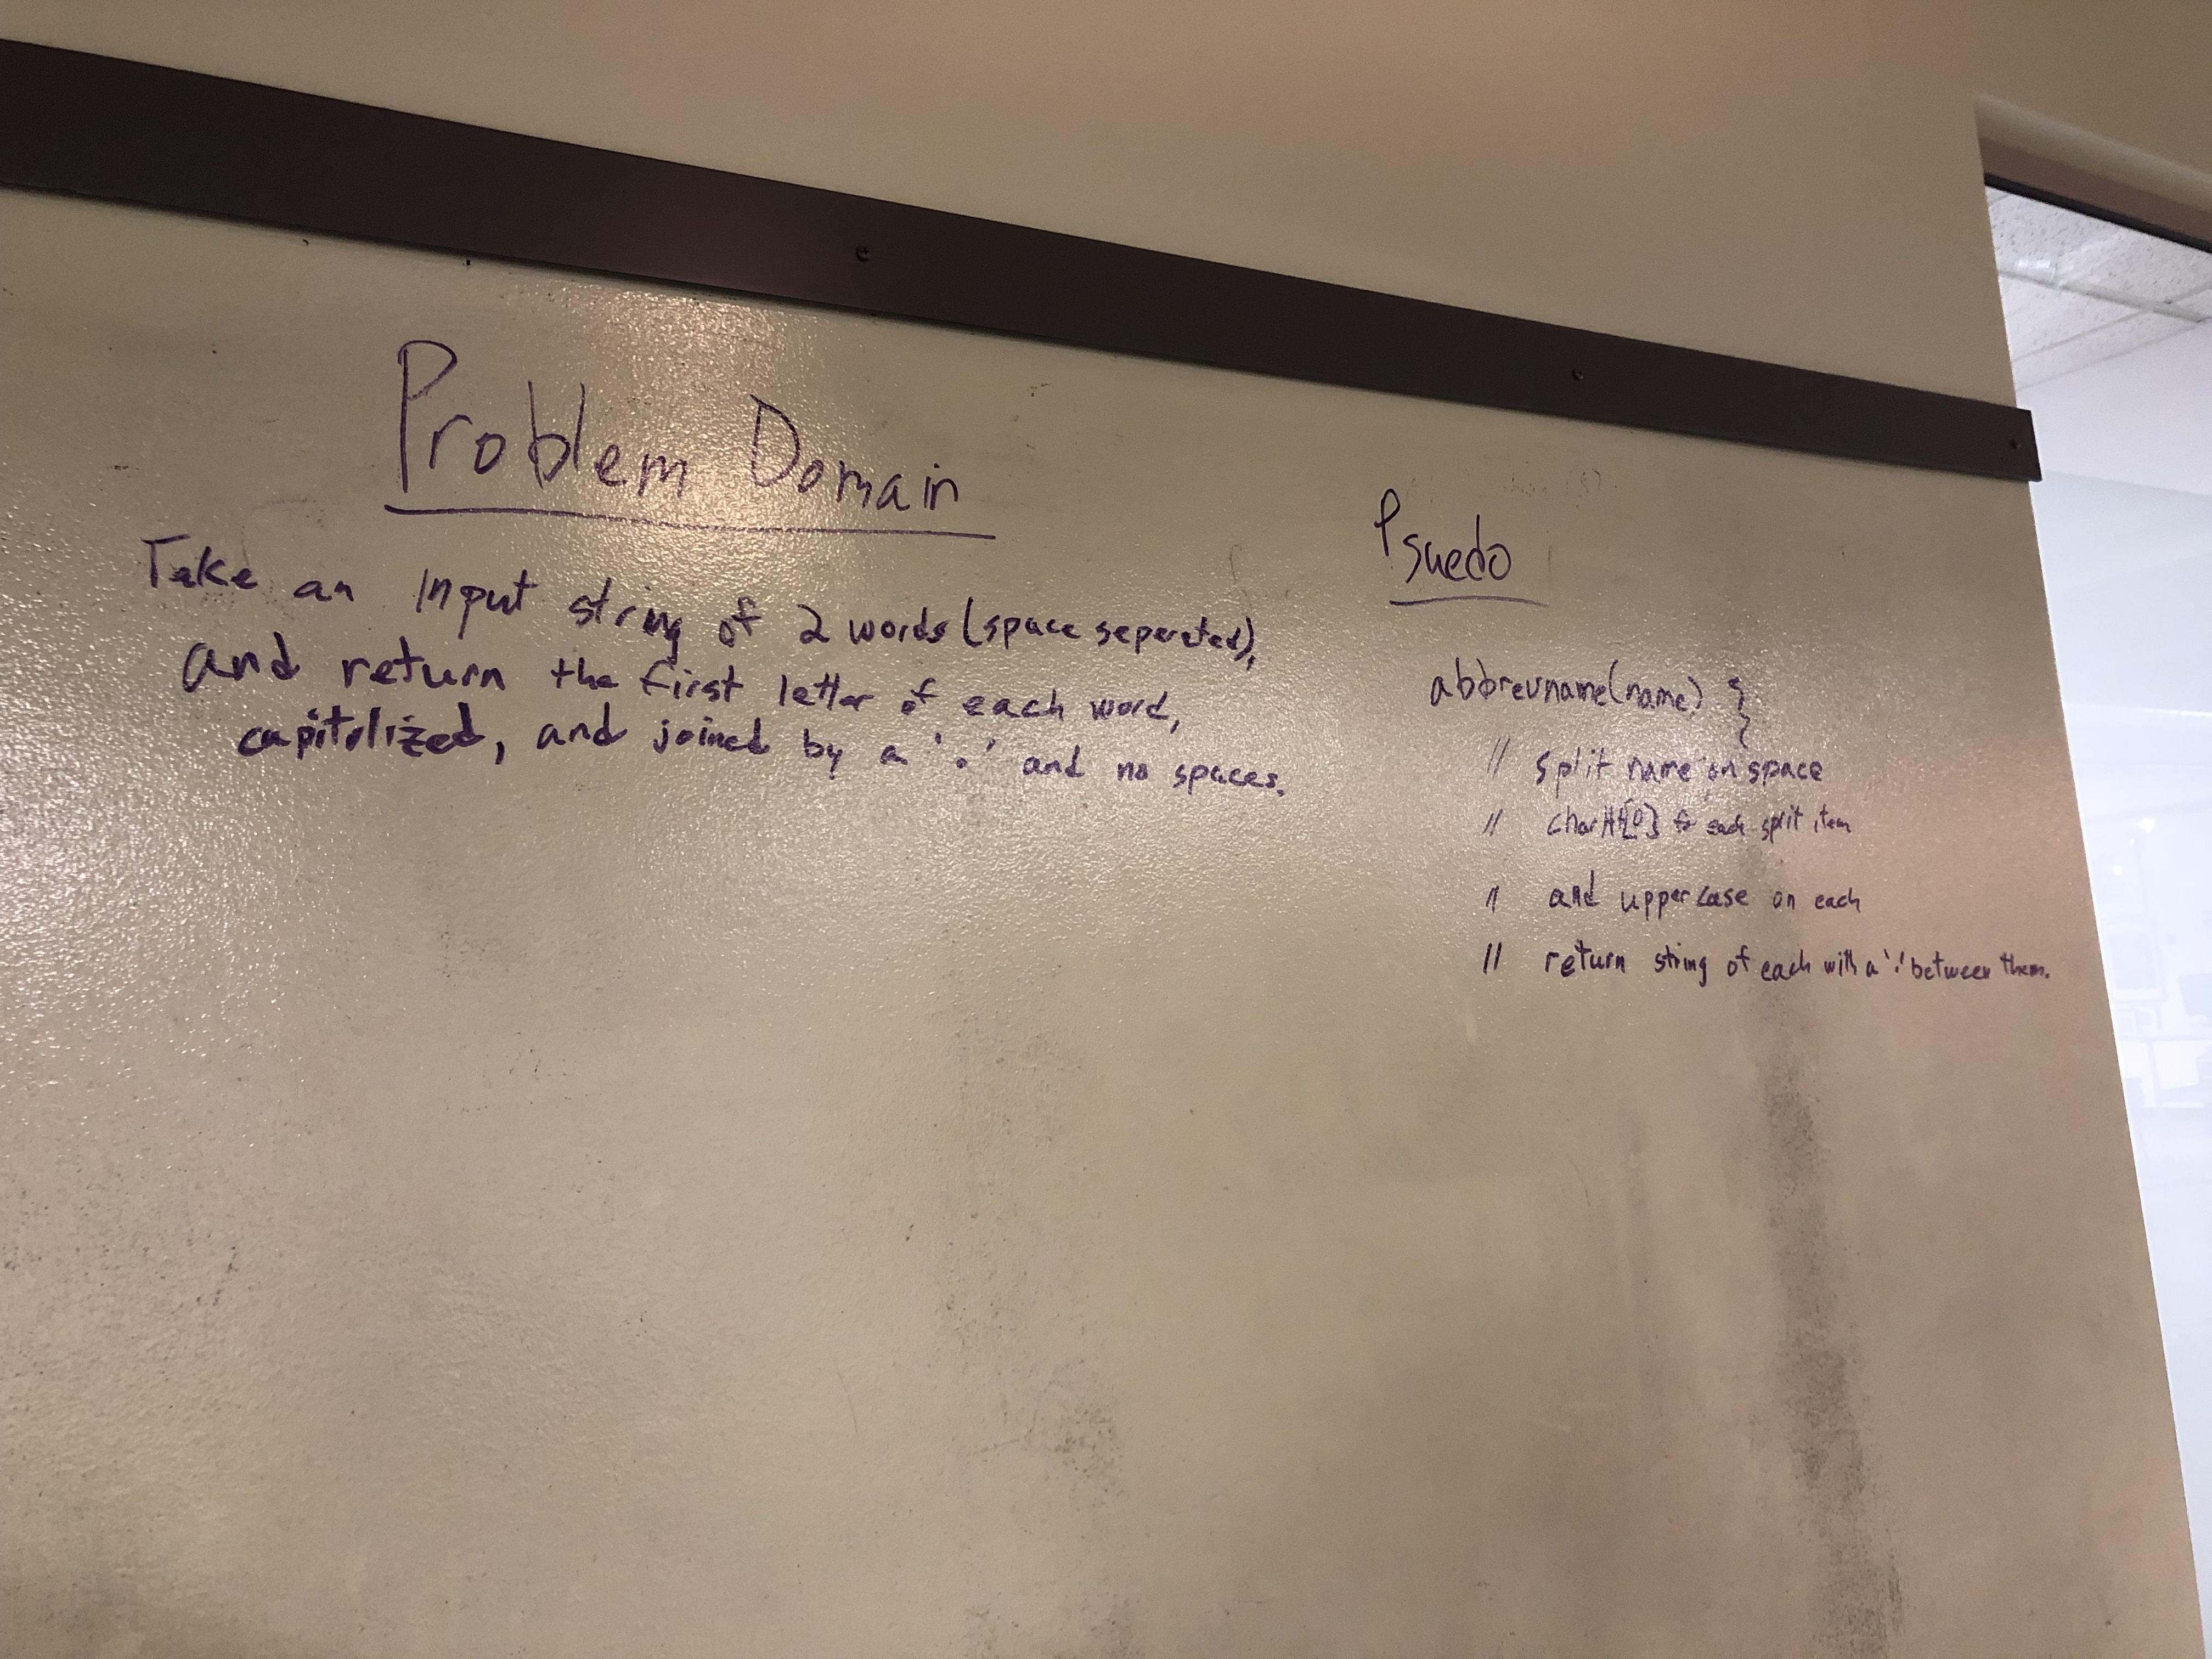 Problem Domain
Take an input string of 2 words (space seperated),
and return the first letter of each word,
capitolized, and joined by a '.' and no spaces.
Psuedo
abbrevname(name) {
}
// split name on space
// charAt[0] for each split item
// and uppercase on each
// return string of each with a '.' between them.